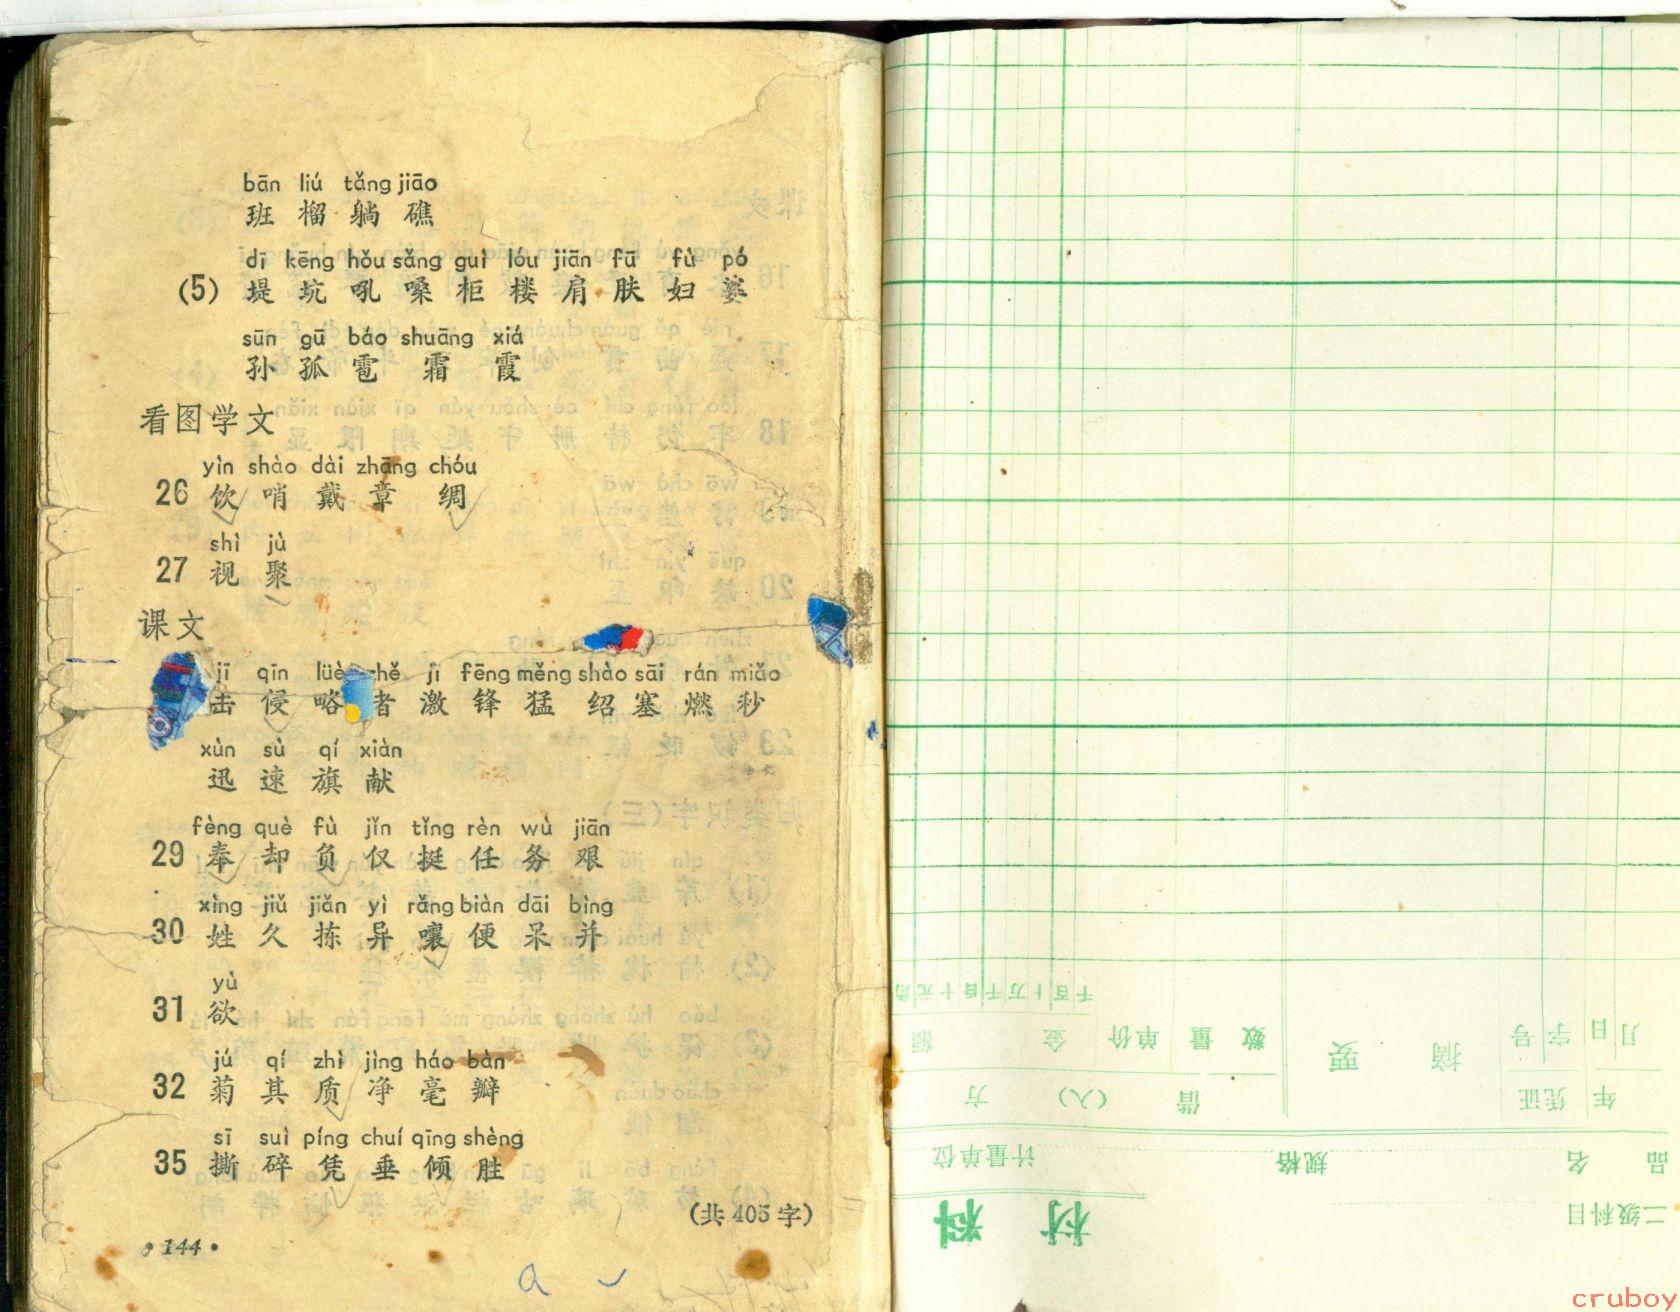 bān liú tǎng jiāo
班 榴 躺 礁
dī kēng hǒu sǎng guì lóu jiān fū fù pó
(5) 堤 坑 吼 嗓 柜 楼 肩 肤 妇 婆
sūn gū báo shuāng xiá
孙 孤 雹 霜 霞
看图学文
yìn shào dài zhāng chóu
26 饮 哨 戴 章 绸
shì jù
27 视 聚
课文
jī qīn lüè zhě jī fēng měng shào sāi rán miǎo
击 侵 略 者 激 锋 猛 绍 塞 燃 秒
xùn sù qí xiàn
迅 速 旗 献
fèng què fù jǐn tǐng rèn wù jiān
29 奉 却 负 仅 挺 任 务 艰
xìng jiǔ jiǎn yì rǎng biàn dāi bìng
30 姓 久 拣 异 嚷 便 呆 并
yù
31 欲
jú qí zhì jìng háo bàn
32 菊 其 质 净 毫 瓣
sī suì píng chuí qīng shèng
35 撕 碎 凭 垂 倾 胜
(共 405 字)
• 144 •
a
材 料
二级科目
品 名 规格 计量单位
年 凭证 摘 要 借 (入) 方
月 日 字 号 数量 单价 金 额
千百十万千百十元角
cruboy